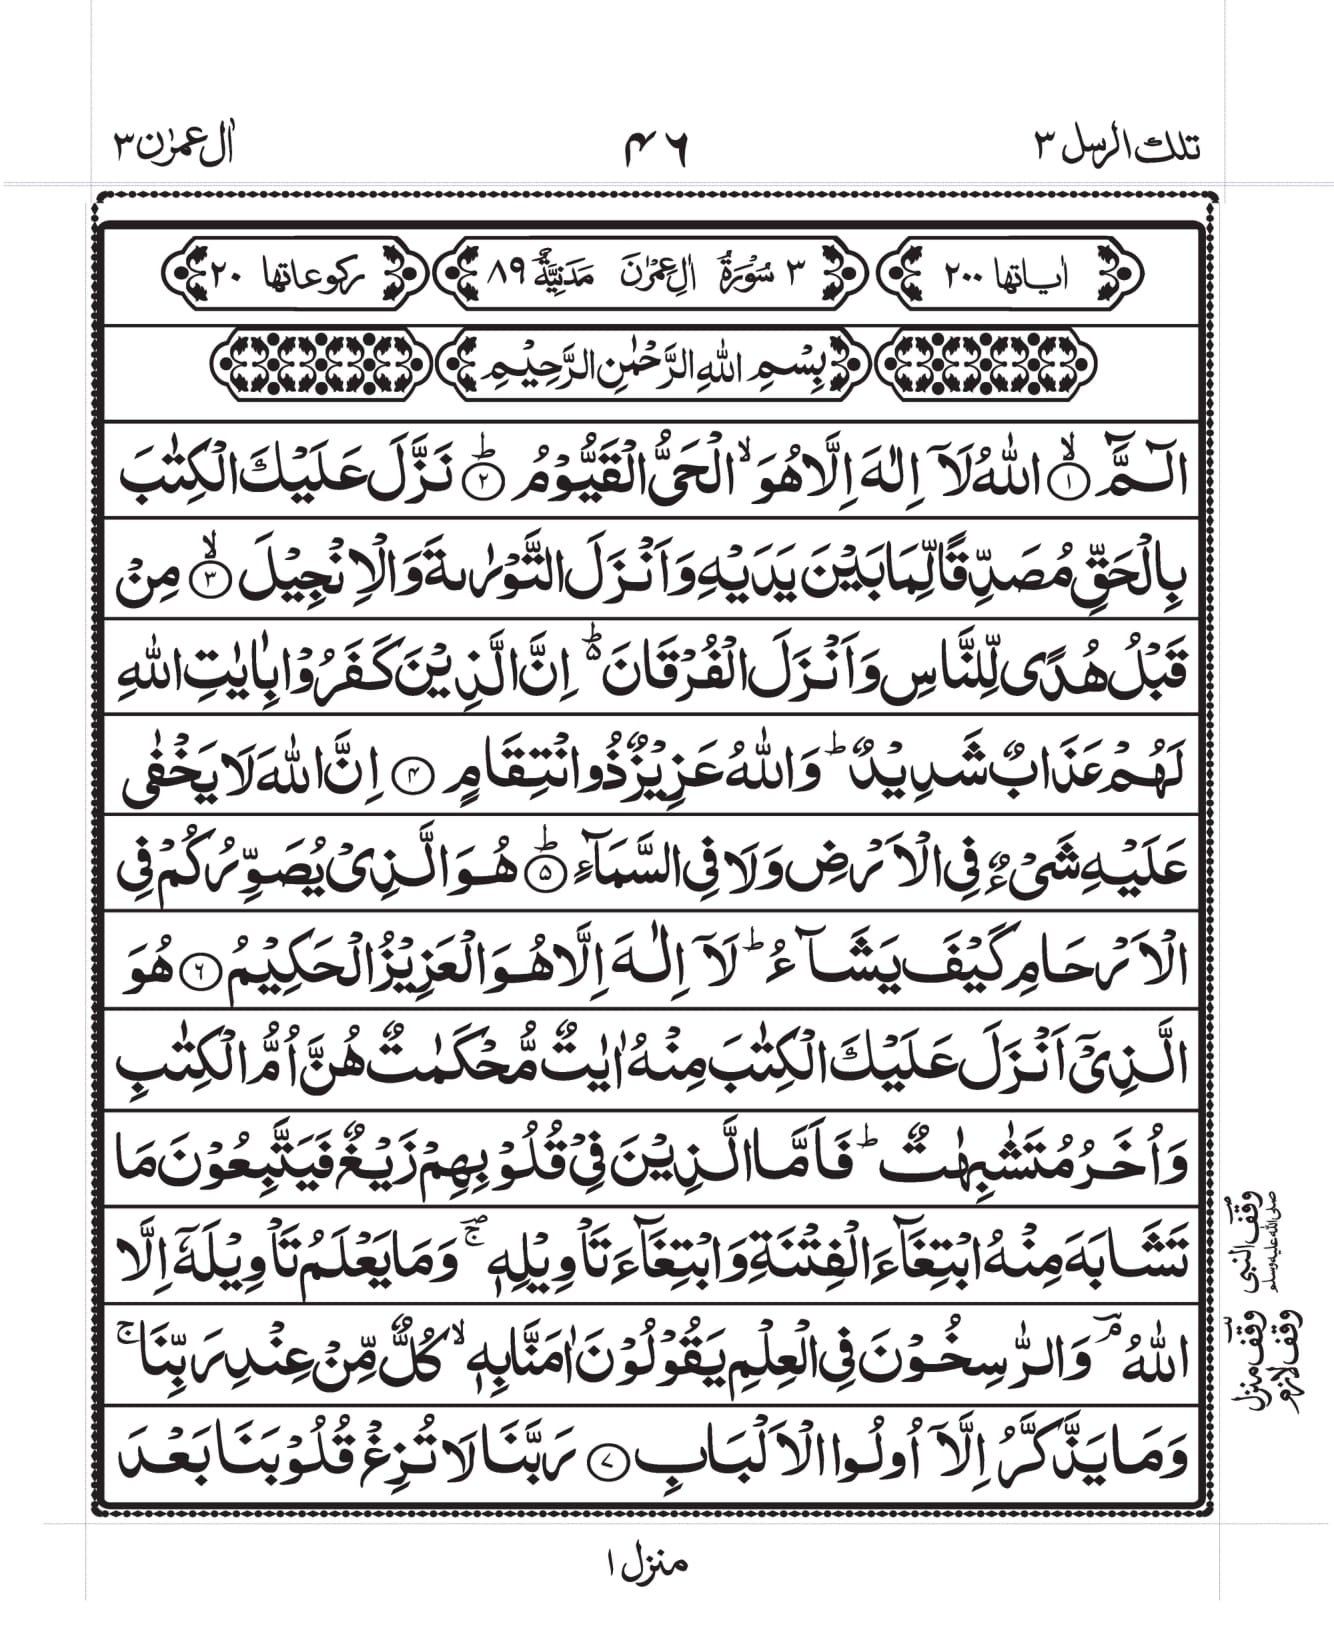 تلك الرسل ٣
۴۶
اٰل عمرٰن ٣
اٰیاتها ٢٠٠
٣ سُوْرَةُ اٰلِ عِمْرٰنَ مَدَنِیَّةٌ ٨٩
ركوعاتها ٢٠
بِسْمِ اللّٰهِ الرَّحْمٰنِ الرَّحِیْمِ
الٓمّٓۙ ۝١ اللّٰهُ لَاۤ اِلٰهَ اِلَّا هُوَۙ الْحَیُّ الْقَیُّوْمُؕ ۝٢ نَزَّلَ عَلَیْكَ الْكِتٰبَ
بِالْحَقِّ مُصَدِّقًا لِّمَا بَیْنَ یَدَیْهِ وَاَنْزَلَ التَّوْرٰىةَ وَالْاِنْجِیْلَۙ ۝٣ مِنْ
قَبْلُ هُدًی لِّلنَّاسِ وَاَنْزَلَ الْفُرْقَانَ۬ؕ اِنَّ الَّذِیْنَ كَفَرُوْا بِاٰیٰتِ اللّٰهِ
لَهُمْ عَذَابٌ شَدِیْدٌؕ وَاللّٰهُ عَزِیْزٌ ذُو انْتِقَامٍ ۝۴ اِنَّ اللّٰهَ لَا یَخْفٰی
عَلَیْهِ شَیْءٌ فِی الْاَرْضِ وَلَا فِی السَّمَآءِؕ ۝۵ هُوَ الَّذِیْ یُصَوِّرُكُمْ فِی
الْاَرْحَامِ كَیْفَ یَشَآءُؕ لَاۤ اِلٰهَ اِلَّا هُوَ الْعَزِیْزُ الْحَكِیْمُ ۝۶ هُوَ
الَّذِیْۤ اَنْزَلَ عَلَیْكَ الْكِتٰبَ مِنْهُ اٰیٰتٌ مُّحْكَمٰتٌ هُنَّ اُمُّ الْكِتٰبِ
وَاُخَرُ مُتَشٰبِهٰتٌؕ فَاَمَّا الَّذِیْنَ فِیْ قُلُوْبِهِمْ زَیْغٌ فَیَتَّبِعُوْنَ مَا
تَشَابَهَ مِنْهُ ابْتِغَآءَ الْفِتْنَةِ وَابْتِغَآءَ تَاْوِیْلِهٖۚؔ وَمَا یَعْلَمُ تَاْوِیْلَهٗۤ اِلَّا
اللّٰهُۘ وَالرّٰسِخُوْنَ فِی الْعِلْمِ یَقُوْلُوْنَ اٰمَنَّا بِهٖۙ كُلٌّ مِّنْ عِنْدِ رَبِّنَاۚ
وَمَا یَذَّكَّرُ اِلَّاۤ اُولُوا الْاَلْبَابِ ۝٧ رَبَّنَا لَا تُزِغْ قُلُوْبَنَا بَعْدَ
وقف النبی صلی الله علیه وسلم
وقف منزل
وقف لازم
منزل ١